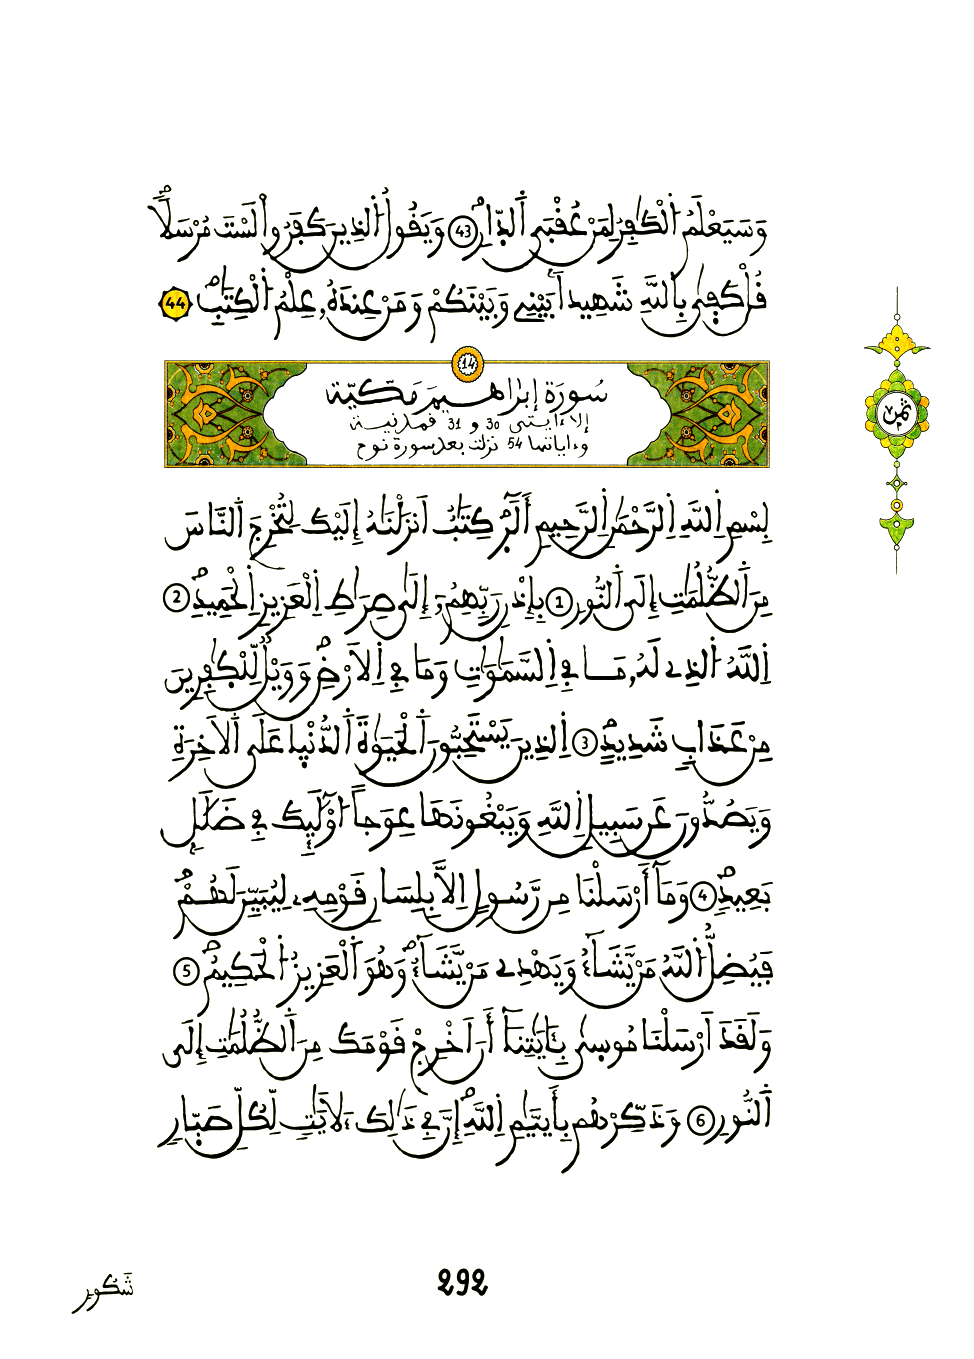 وَسَيَعْلَمُ اُ۬لْكَٰفِرُ لِمَنْ عُقْبَي اَ۬لدّ۪ارِۖ 43 وَيَقُولُ اُ۬لذِينَ كَفَرُواْ لَسْتَ مُرْسَلاٗۖ
قُلْ كَف۪ىٰ بِاللَّهِ شَهِيداَۢ بَيْنِے وَبَيْنَكُمْ وَمَنْ عِندَهُۥ عِلْمُ اُ۬لْكِتَٰبِۖ 44
14
سُورَة إِبْرَاهِيمَ مَكّيّة
إلا ءايتى 30 و 31 فمدنية
وءاياتها 54 نزلت بعد سورة نوح
بِسْمِ اِ۬للَّهِ اِ۬لرَّحْمَٰنِ اِ۬لرَّحِيمِ أَلَٓر۪ۖ كِتَٰبٌ اَنزَلْنَٰهُ إِلَيْكَ لِتُخْرِجَ اَ۬لنَّاسَ
مِنَ اَ۬لظُّلُمَٰتِ إِلَي اَ۬لنُّورِ 1 بِإِذْنِ رَبِّهِمُۥٓ إِلَىٰ صِرَٰطِ اِ۬لْعَزِيزِ اِ۬لْحَمِيدِۖ 2
اِ۬للَّهُ اُ۬لذِے لَهُۥ مَا فِے اِ۬لسَّمَٰوَٰتِ وَمَا فِے اِ۬لَارْضِۖ وَوَيْلٞ لِّلْكٰ۪فِرِينَ
مِنْ عَذَابٖ شَدِيدٍۖ 3 اِ۬لذِينَ يَسْتَحِبُّونَ اَ۬لْحَيَوٰةَ اَ۬لدُّنْي۪ا عَلَي اَ۬لَاخِرَةِ
وَيَصُدُّونَ عَن سَبِيلِ اِ۬للَّهِ وَيَبْغُونَهَا عِوَجاًۖ ا۟وْلَٰٓئِكَ فِے ضَلَٰلِۢ
بَعِيدٖۖ 4 وَمَآ أَرْسَلْنَا مِن رَّسُولٍ اِلَّا بِلِسَانِ قَوْمِهِۦ لِيُبَيِّنَ لَهُمْۖ
فَيُضِلُّ اُ۬للَّهُ مَنْ يَّشَآءُ وَيَهْدِے مَنْ يَّشَآءُۖ وَهُوَ اَ۬لْعَزِيزُ اُ۬لْحَكِيمُۖ 5
وَلَقَدَ اَرْسَلْنَا مُوس۪ىٰ بِـَٔايَٰتِنَآ أَنَ اَخْرِجْ قَوْمَكَ مِنَ اَ۬لظُّلُمَٰتِ إِلَي
اَ۬لنُّورِ 6 وَذَكِّرْهُم بِأَيَّيٰمِ اِ۬للَّهِۖ إِنَّ فِے ذَٰلِكَ لَأٓيَٰتٖ لِّكُلِّ صَبّ۪ارٖ
ثمن
292
شكور